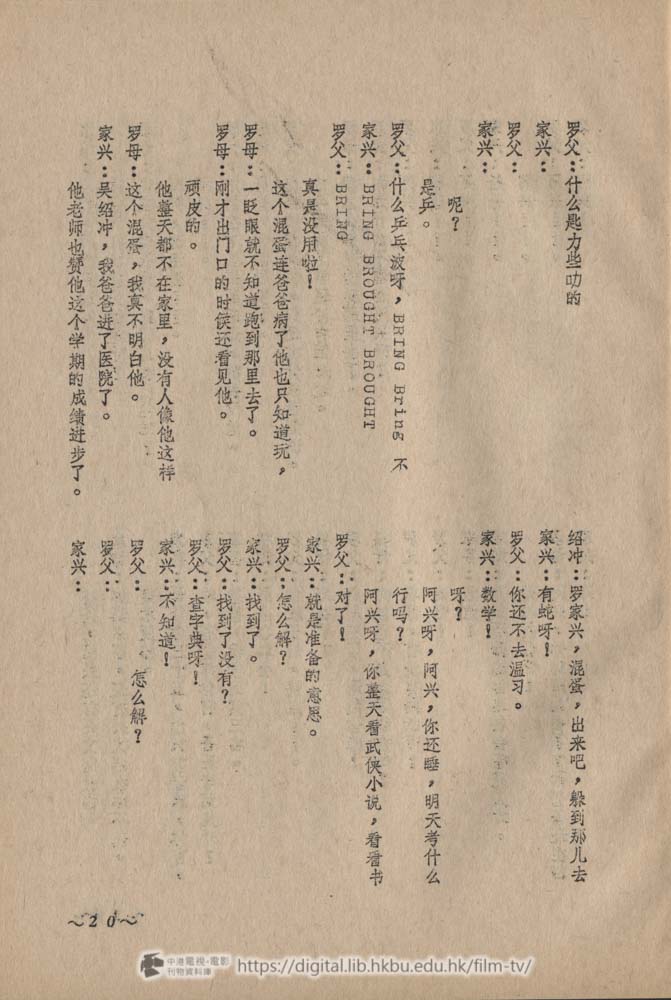 他老师也赞他这个学期的成绩进步了。
家兴：吴绍冲，我爸爸进了医院了。
罗母：这个混蛋，我真不明白他。
他整天都不在家里，没有人像他这样
顽皮的。
罗母：刚才出门口的时侯还看见他。
罗母：一眨眼就不知道跑到那里去了。
这个混蛋连爸爸病了他也只知道玩，
真是没用啦！
罗父：BRING
家兴：BRING BROUGHT BROUGHT
罗父：什么乒乓波呀，BRING Bring 不
是乒。
呢？
家兴：
罗父：
家兴：
罗父：什么匙力些叻的
家兴：
罗父：
罗父：怎么解？
家兴：不知道！
罗父：查字典呀！
罗父：找到了没有？
家兴：找到了。
罗父：怎么解？
家兴：就是准备的意思。
罗父：对了！
阿兴呀，你整天看武侠小说，看看书
行吗？
阿兴呀，阿兴，你还睡，明天考什么
呀？
家兴：数学！
罗父：你还不去温习。
家兴：有蛇呀！
绍冲：罗家兴，混蛋，出来吧，躲到那儿去
～20～
中港電視·電影
刊物資料庫
https://digital.lib.hkbu.edu.hk/film-tv/